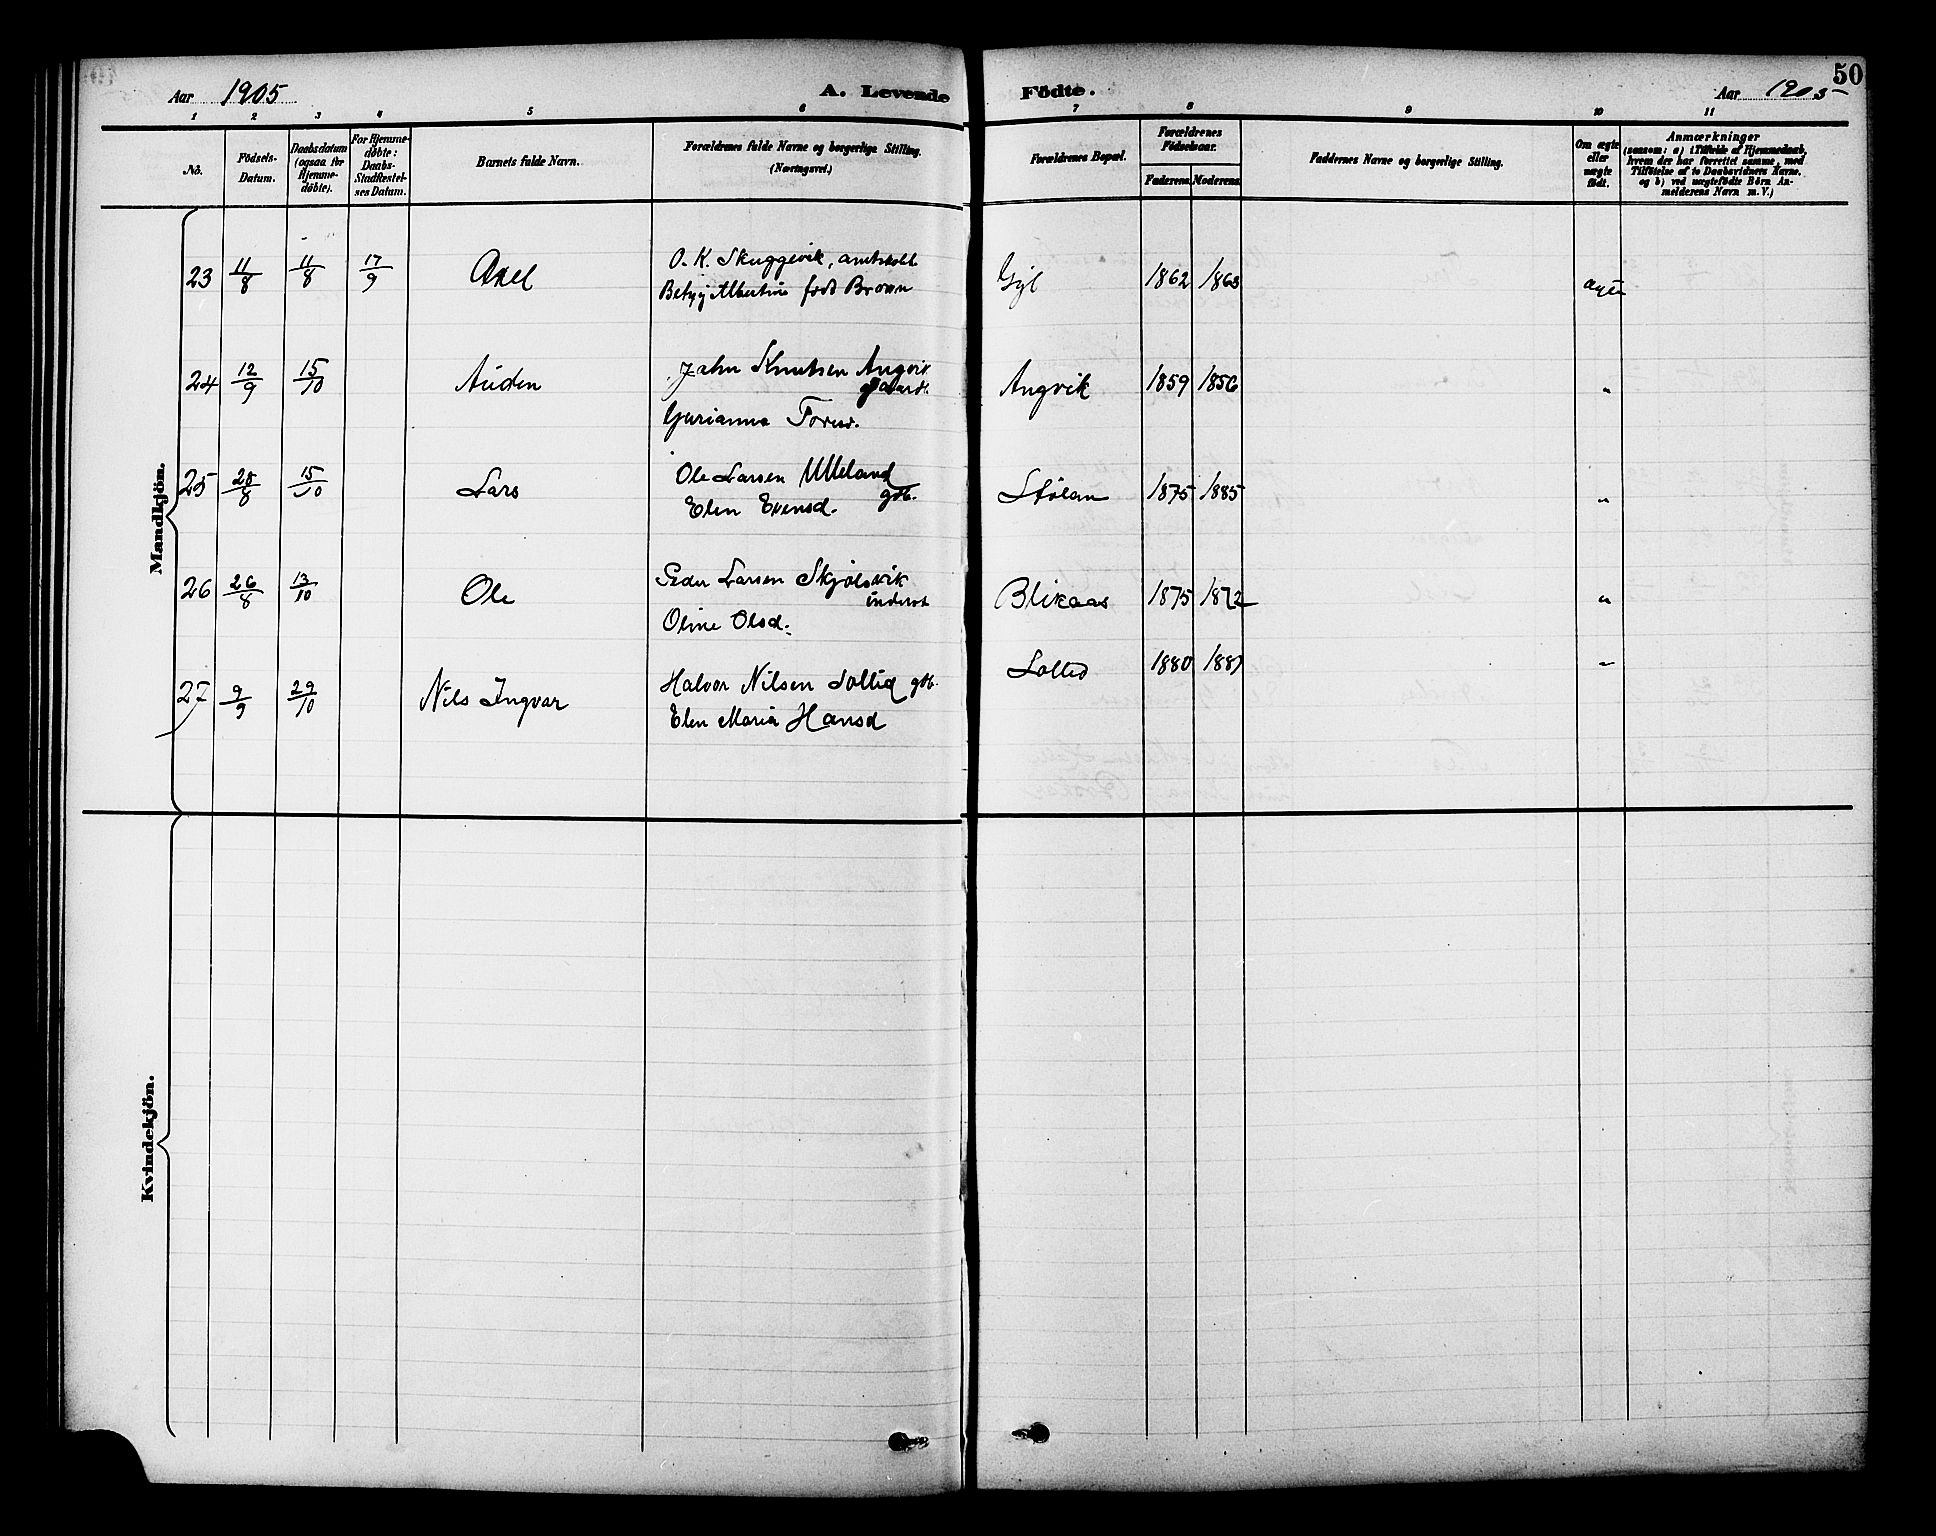 50
Aar 1905
A. Levende Födte.
Aar 1905
1 2 3 4 5 6 7 8 9 10 11
No.
Födsels-Datum.
Daabsdatum (ogsaa for Hjemme-döbte).
For Hjemme-döbte: Daabs-Stadfæstel-ses Datum.
Barnets fulde Navn.
Forældrenes fulde Navne og borgerlige Stilling. (Næringsvei.)
Forældrenes Bopæl.
Forældrenes Födselsaar.
Faderens. Moderens.
Faddernes Navne og borgerlige Stilling.
Om ægte eller uægte födt.
Anmærkninger
(saasom: a) i Tilfælde af Hjemmedaab,
hvem der har forrettet samme, med
Tilföielse af to Daabsvidners Navne,
og b) ved uægtefödte Börn An-
melderens Navn m. V.)
Mandkjön.
23 11/8 11/8 17/9 Axel O. K. Skuggevik, Gyl 1862 1863 ægte
Albertine född Brown
24 12/9 15/10 Auden John Knutsen Angvik Angvik 1859 1856 "
gaardb.
Gurianna
25 25/8 15/10 Lars Ole Larsen Ulleland Stølan 1875 1885 "
gdb.
Elen Evensd.
26 26/8 13/10 Ole Peder Larsen Skjølsvik Blikaas 1875 1872 "
inderst
Oline Olsd.
27 9/9 29/10 Nils Ingvar Halvor Nilsen Sollid gdb. Sollid 1880 1881 "
Elen Maria Hansd
Kvindekjön.